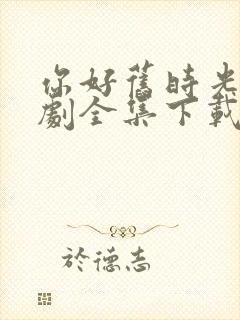 你好舊時光
劇全集下載
於德志